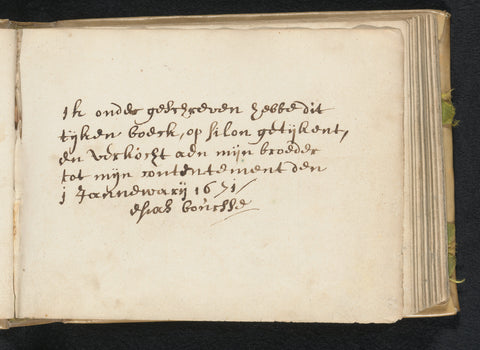 Ik onder geschreven hebbe dit
tijken boeck, op silon getijkent,
en verkocht aen mijn broeder
tot mijn contentement den
j Jannewarij 1671/
esias boursse